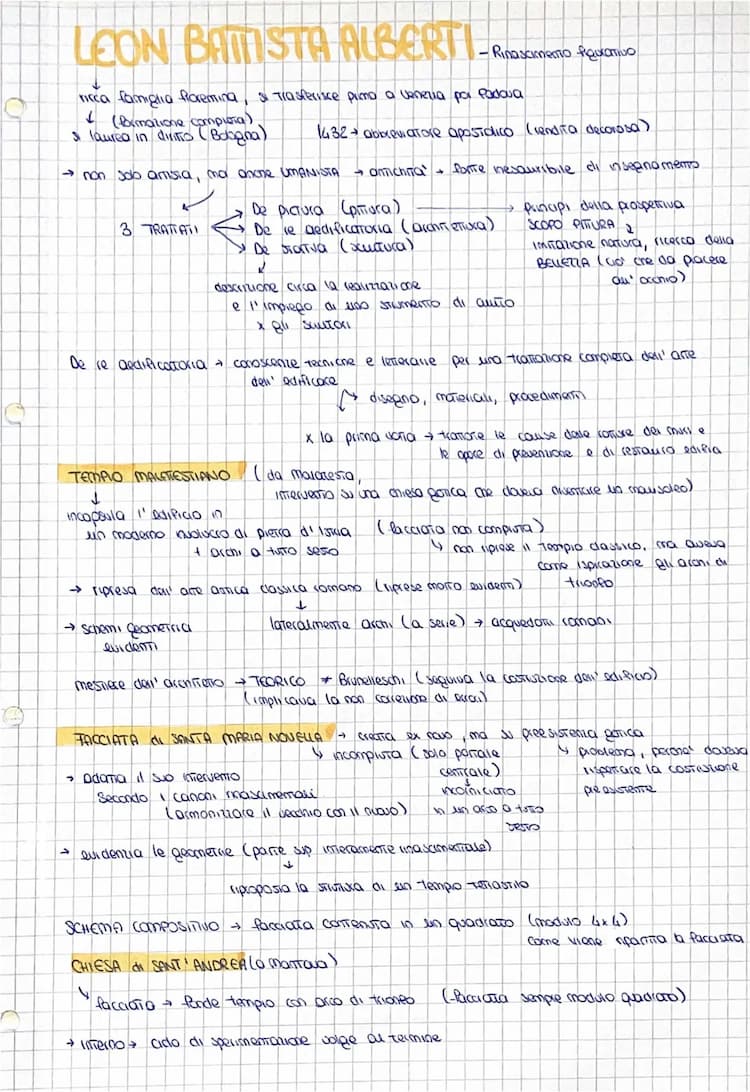 LEON BATTISTA ALBERTI - Rinascimento figurativo
ricca famiglia fiorentina, si trasferisce prima a Venezia poi Padova
(formazione compiuta)
si laurea in diritto (Bologna) 1432 → abbreviatore apostolico (rendita decorosa)
→ non solo artista, ma anche UMANISTA → antichità → fonte inesauribile di insegnamento
3 TRATTATI
De pictura (pittura) → principi della prospettiva
De re aedificatoria (architettura) SCOPO PITTURA
De statua (scultura) imitazione natura, ricerca della
BELLEZZA (ciò che dà piacere
all'occhio)
descrizione circa la realizzazione
e l'impiego di uno strumento di aiuto
x gli scultori
De re aedificatoria → conoscenze tecniche e letterarie per una trattazione completa dell'arte
dell'edificare
disegno, materiali, procedimenti
x la prima volta → trattare le cause delle rotture dei muri e
le opere di prevenzione e di restauro edifici
TEMPIO MALATESTIANO (da Malatesta,
intervento su una chiesa gotica che doveva diventare un mausoleo)
incapsula l'edificio in
un moderno involucro di pietra d'Istria (facciata non compiuta)
+ archi a tutto sesto → non riprese il Tempio classico, ma aveva
come ispirazione gli archi di
trionfo
→ ripresa dall'arte antica classica romana (riprese molto evidenti)
→ schemi geometrici lateralmente archi (a serie) → acquedotti romani
evidenti
mestiere dell'architetto → TEORICO ≠ Brunelleschi (seguiva la costruzione dell'edificio)
(implicava la non correzione di errori)
FACCIATA di SANTA MARIA NOVELLA → creata ex novo, ma su preesistenza gotica
incompiuta (solo portale problema, perché doveva
→ adatta il suo intervento centrale) rispettare la costruzione
secondo i canoni rinascimentali incorniciato preesistente
(armonizzare il vecchio con il nuovo) in un arco a tutto
sesto
→ evidenzia le geometrie (parte sup interamente rinascimentale)
riproposta la struttura di un tempio tetrastilo
SCHEMA COMPOSITIVO → facciata contenuta in un quadrato (modulo 4x4)
come viene ripartita la facciata
CHIESA di SANT'ANDREA (a Mantova)
facciata → fonde tempio con arco di trionfo (facciata sempre modulo quadrato)
→ interno → ciclo di sperimentazione volge al termine